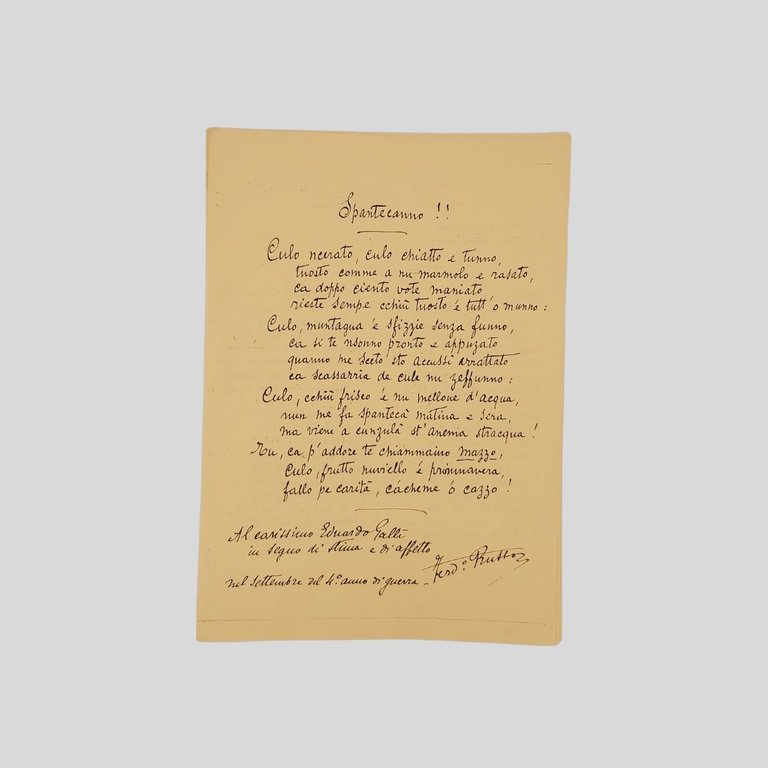 Spantecanno !!
Culo ncerato, culo chiatto e tunno,
tuosto comme a nu marmolo e rasato,
ca doppo ciento vote maniato
rieste sempe cchiù tuosto 'e tutt' 'o munno :
Culo, muntagna 'e sfizzie senza funno,
ca si te nsonno pronto e appuzato
quanno me sceto sto accussì arrattato
ca scassarria de cule nu zeffunno :
Culo, cchiù frisco 'e nu mellone d'acqua,
nun me fa spantecà matina e sera,
ma viene a cunzulà st'anema stracqua !
Tu, ca p'addore te chiammaino mazzo,
Culo, frutto nuviello 'e primmavera,
fallo pe carità, càcheme 'o cazzo !
Al carissimo Eduardo Galli
in segno di stima e di affetto
nel settembre del 4º anno di guerra - Ferd.º Russo